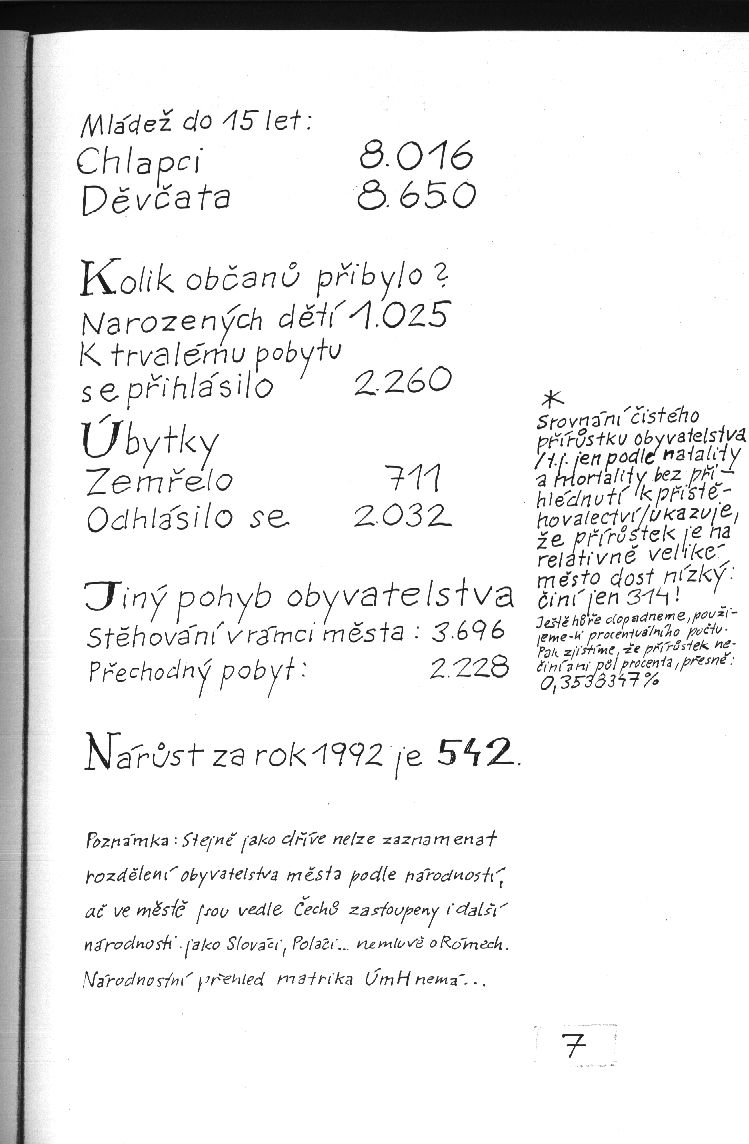 Mládež do 15 let:
Chlapci 8.016
Děvčata 8.650
Kolik občanů přibylo?
Narozených dětí 1.025
K trvalému pobytu
se přihlásilo 2.260
Úbytky
Zemřelo 711
Odhlásilo se 2.032
Jiný pohyb obyvatelstva
Stěhování v rámci města: 3.696
Přechodný pobyt: 2.228
Nárůst za rok 1992 je 542.
Poznámka: Stejně jako dříve nelze zaznamenat
rozdělení obyvatelstva města podle národností,
ač ve městě jsou vedle Čechů zastoupeny i další
národnosti jako Slováci, Poláci... nemluvě o Rómech.
Národnostní přehled matrika ÚmH nemá...
*
Srovnání čistého
přírůstku obyvatelstva
/t.j. jen podle natality
a mortality bez při-
hlédnutí k přistě-
hovalectví/ukazuje,
že přírůstek je na
relativně veliké
město dost nízký:
činí jen 314!
Ještě hůře dopadneme, použi-
jeme-li procentuálního počtu.
Pak zjistíme, že přírůstek ne-
činí ani půl procenta, přesně:
0,3538347%
7